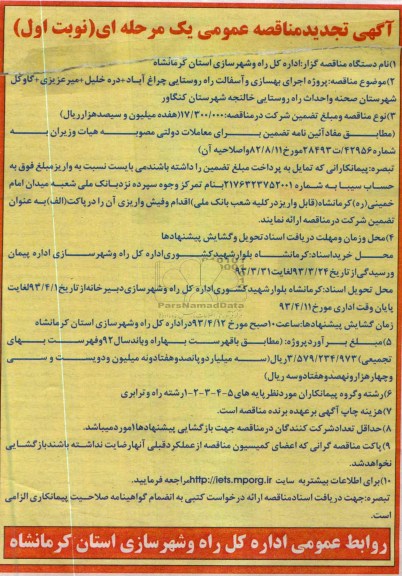 آگهی تجدیدمناقصه عمومی یک مرحله ای(نوبت اول)
۱)نام دستگاه مناقصه گزار:اداره کل راه وشهرسازی استان کرمانشاه
۲)موضوع مناقصه:پروژه اجرای بهسازی وآسفالت راه روستایی چراغ آباد+دره خلیل+میرعزیزی+گاوکل
شهرستان صحنه واحداث راه روستایی خالتجه شهرستان کنگاور
۳)نوع مناقصه ومبلغ تضمین شرکت درمناقصه:۱۷/۳۰۰/۰۰۰(هفده میلیون و سیصدهزارریال)
(مطابق مفادآئین نامه تضمین برای معاملات دولتی مصوبه هیات وزیران به
شماره۴۲۹۵۶/ت۲۸۴۹۳مورخ۸۲/۸/۱۱واصلاحیه آن)
تبصره:پیمانکارانی که تمایل به پرداخت مبلغ تضمین را داشته باشندمی بایست نسبت به واریزمبلغ فوق به
حساب سیبا به شماره ۲۱۷۶۳۲۳۷۵۲۰۰۱بنام تمرکز وجوه سپرده نزدبانک ملی شعبه میدان امام
خمینی(ره)کرمانشاه(قابل واریزدرکلیه شعب بانک ملی)اقدام وفیش واریزی آن را درپاکت(الف)به عنوان
تضمین شرکت درمناقصه ارائه نمایند.
۴)محل وزمان ومهلت دریافت اسنادتحویل وگشایش پیشنهادها
محل خریداسناد:کرمانشاه بلوارشهیدکشوری اداره کل راه وشهرسازی اداره پیمان
ورسیدگی ازتاریخ۹۳/۳/۲۴لغایت۹۳/۳/۳۱
محل تحویل اسناد:کرمانشاه بلوارشهیدکشوری اداره کل راه وشهرسازی دبیرخانه ازتاریخ۹۳/۴/۱لغایت
پایان وقت اداری مورخ۹۳/۴/۱۱
زمان گشایش پیشنهادها:ساعت۱۰صبح مورخ ۹۳/۴/۱۲دراداره کل راه وشهرسازی استان کرمانشاه
۵)مبلغ برآوردپروژه: (مطابق بافهرست بهاراه وباندسال۹۲وفهرست بهای
تجمیعی)۳/۵۷۹/۲۳۴/۹۷۳ریال(سه میلیاردوپانصدوهفتادونه میلیون ودویست و سی
وچهارهزارونهصدوهفتادوسه ریال)
۶)رشته وگروه پیمانکاران موردنظرپایه های۵-۴-۳-۲-۱رشته راه وترابری
۷)هزینه چاپ آگهی برعهده برنده مناقصه است.
۸)حداقل تعدادشرکت کنندگان درمناقصه جهت بازگشایی پیشنهادها۱موردمیباشد.
۹)پاکت مناقصه گرانی که اعضای کمیسیون مناقصه ازعملکردقبلی آنهارضایت نداشته باشندبازگشایی
نخواهدشد.
۱۰)برای اطلاعات بیشتربه سایت http://iets.mporg.irمراجعه فرمایید.
تبصره:جهت دریافت اسنادمناقصه ارائه درخواست کتبی به انضمام گواهینامه صلاحیت پیمانکاری الزامی
است.
روابط عمومی اداره کل راه وشهرسازی استان کرمانشاه
ParsNamadData